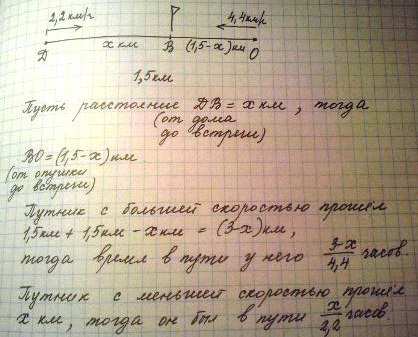 2,2 км/ч 4,4 км/ч
x км (1,5-x) км
D B O
1,5 км
Пусть расстояние DB = x км, тогда
(от дома
до встречи)
BO = (1,5-x) км
(от опушки
до встречи)
Путник с большей скоростью прошёл
1,5 км + 1,5 км - x км = (3-x) км,
тогда время в пути у него 3-x/4,4 часов.
Путник с меньшей скоростью прошёл
x км, тогда он был в пути x/2,2 часов.